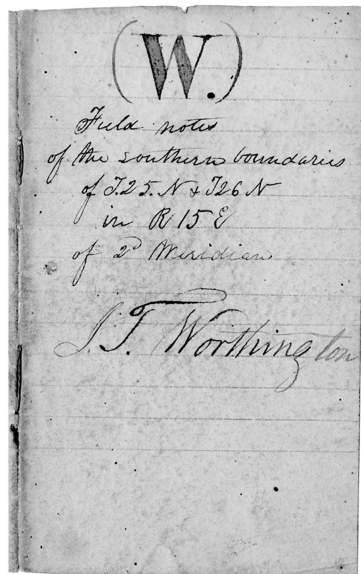 (W.)
Field notes
of the southern boundaries
of T.25.N & T26 N
in R 15 E
of 2d Meridian
J.T. Worthington